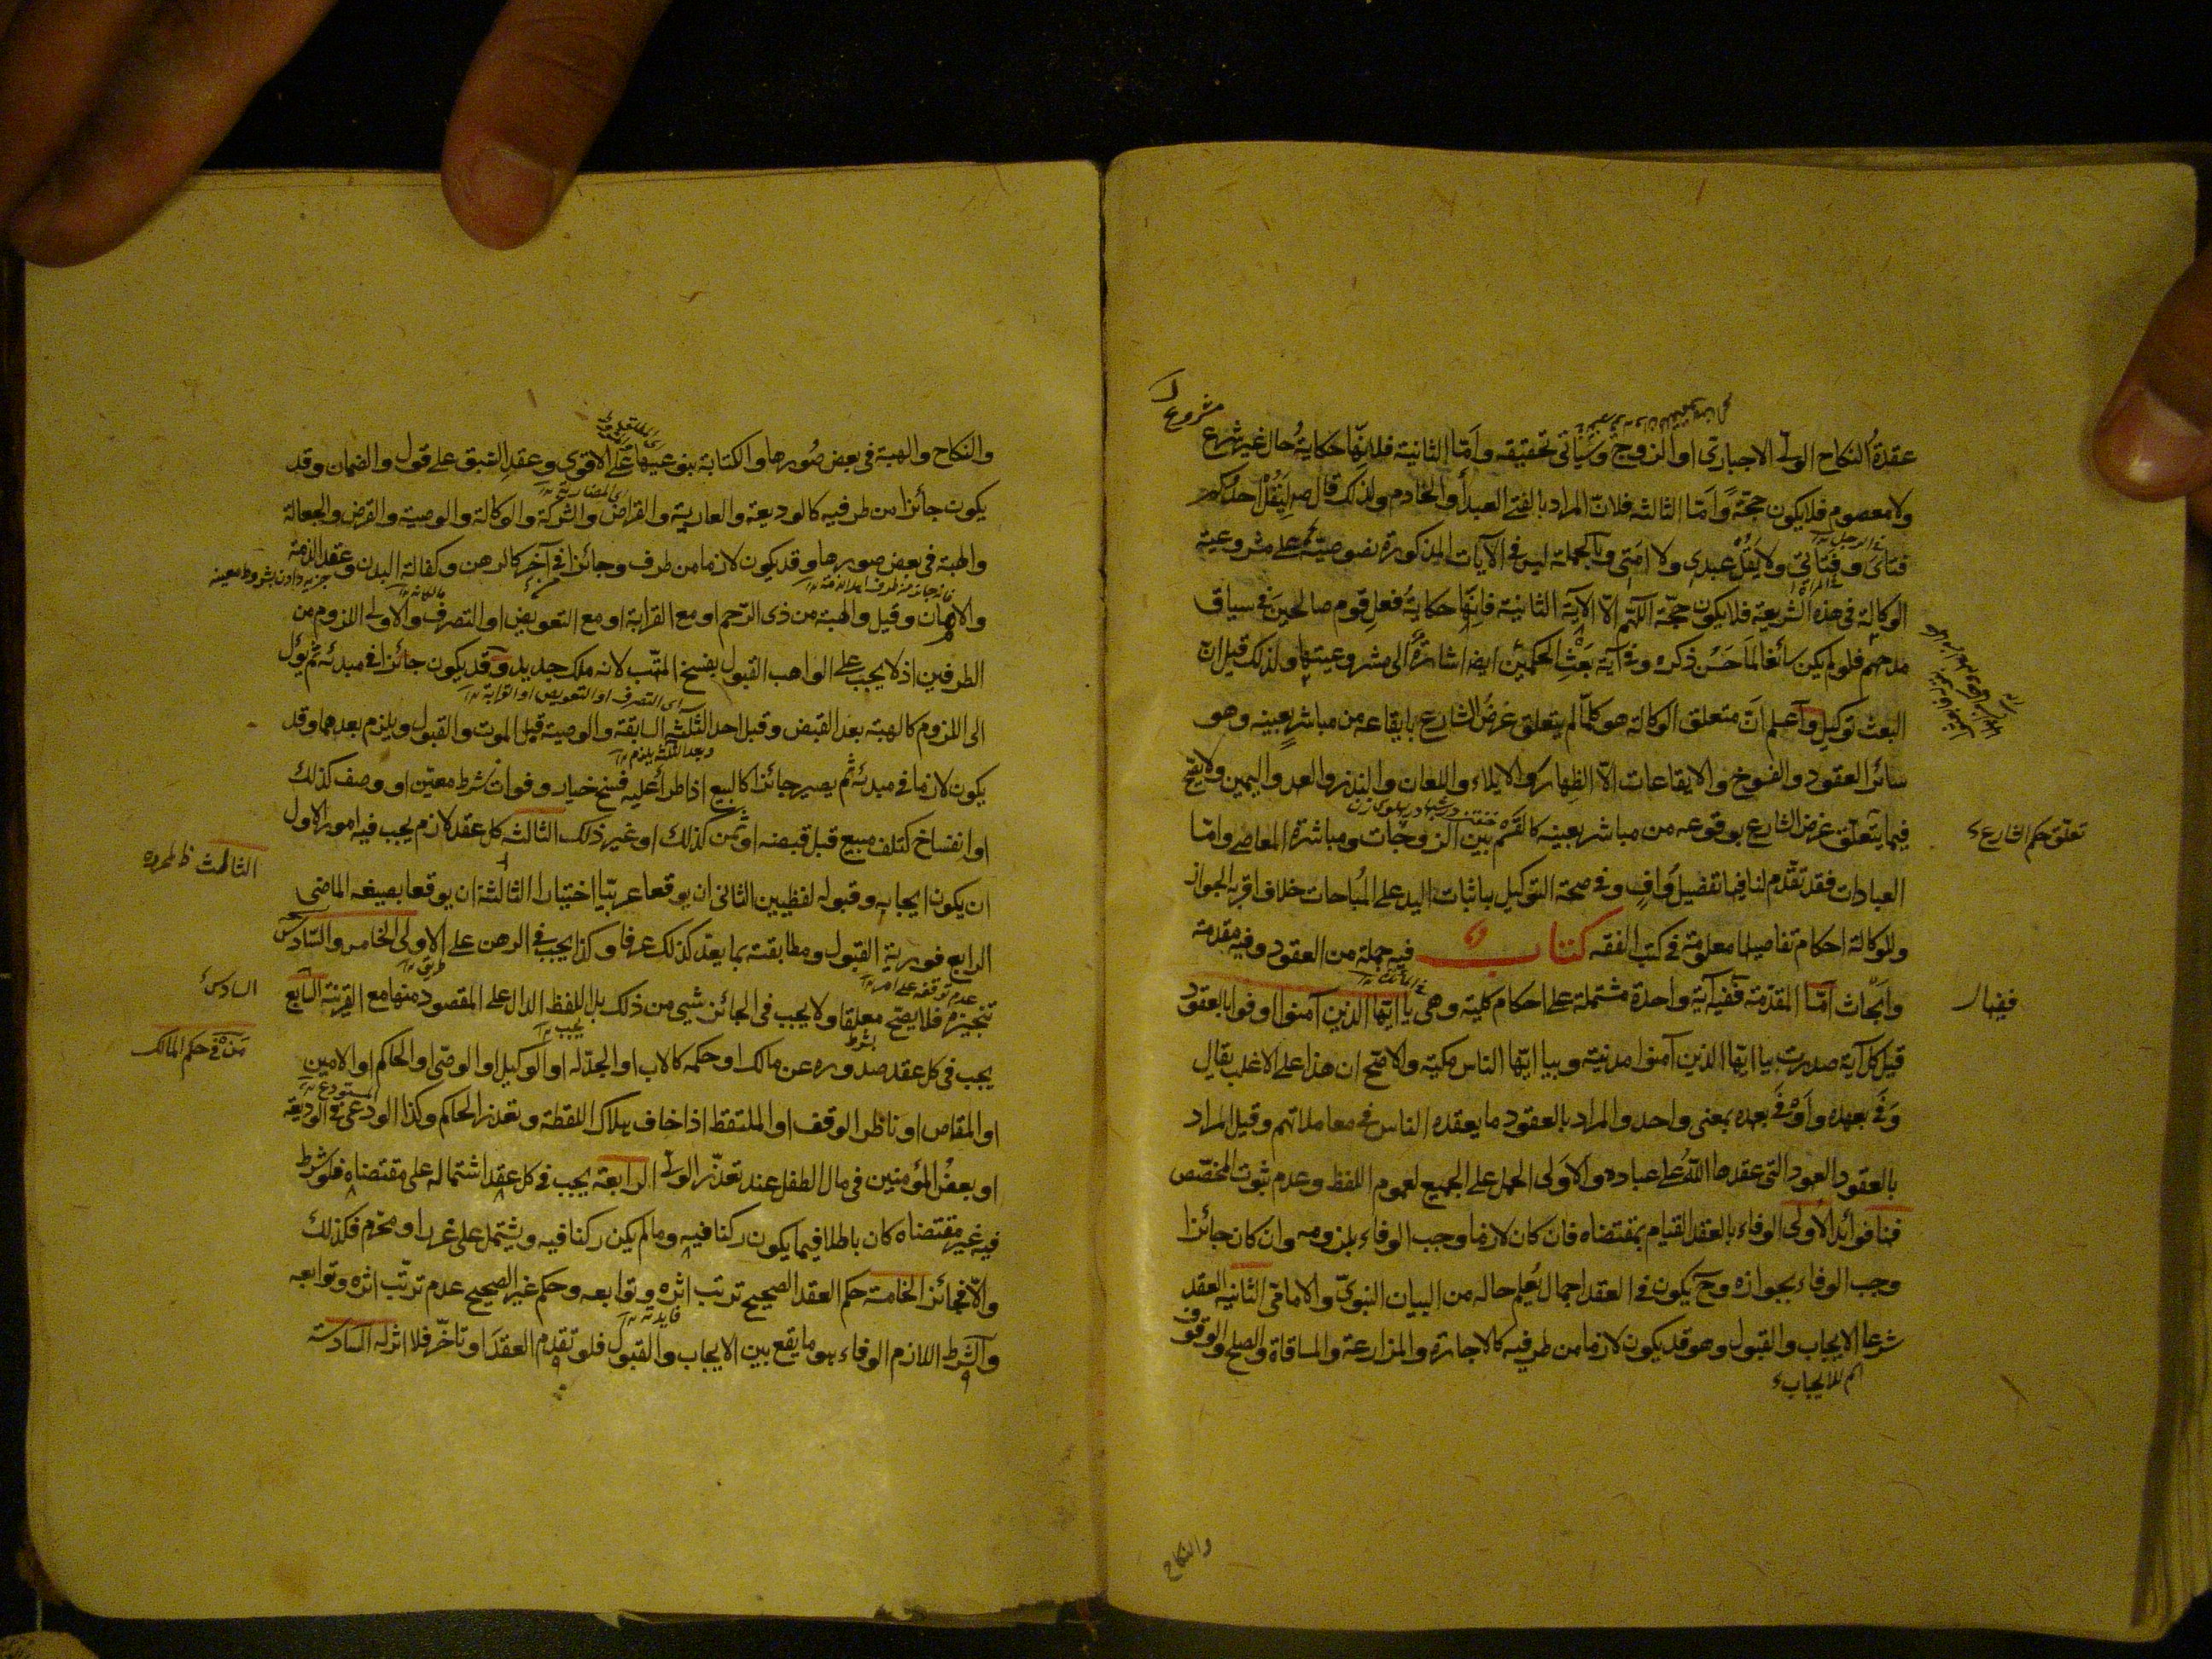 عقدة النكاح الولى الاجبارى او الزوج وسياتى تحقيقه وامّا الثانية فلانّها حكاية حال غير شرع
مشروع
ولا معصوم فلا يكون حجّة وامّا الثالثة فلانّ المراد بالفتى العبد او الخادم ولذلك قال ص ليقل احدكم
فتاى وفتاتى ولا يقل عبدى ولا امتى وبالجملة ليس فى الآيات المذكورة نصوصيّة على مشروعية
الوكالة فى هذه الشريعة فلا يكون حجّة اللّهم الّا الآية الثانية فانّها حكاية فعل قوم صالحين فى سياق
مدحهم فلو لم يكن سائغا لما حسن ذكره وفى آية بعث الحكمين ايضا اشارة الى مشروعيتها ولذلك قيل انّ
البعث توكيل واعلم انّ متعلق الوكالة هو كلّما لم يتعلق غرض الشارع بايقاعه من مباشر بعينه وهو
سائر العقود والفسوخ والايقاعات الّا الظهار والايلاء واللعان والنذر والعهد واليمين ولا يصح
فيما يتعلّق غرض الشارع بوقوعه من مباشر بعينه كالقسم بين الزوجات ومباشرة المعاصى وامّا
تعلّق حكم الشارع
العبادات فقد تقدّم لنا فيها تفصيل واف وفى صحة التوكيل باثبات اليد على المباحات خلاف اقربه الجواز
وللوكالة احكام تفاصيلها معلومة فى كتب الفقه كتاب فيه جملة من العقود وفيه مقدمة
وابحاث امّا المقدّمة ففيه آية واحدة مشتملة على احكام كلية وهى يا ايّها الذين آمنوا اوفوا بالعقود
ففيها
قيل كل آية صدرت بيا ايّها الذين آمنوا مدنية وبيا ايّها الناس مكية والاصّح ان هذا على الاغلب يقال
وفى بعهده واوفى بعهده بمعنى واحد والمراد بالعقود ما يعقده الناس فى معاملاتهم وقيل المراد
بالعقود العهود التى عقدها الله على عباده والاولى الحمل على الجميع لعموم اللفظ وعدم ثبوت المخصّص
فهنا فوائد الاولى الوفاء بالعقد القيام بمقتضاه فان كان لازما وجب الوفاء بلزومه وان كان جائزا
وجب الوفاء بجوازه وح يكون فى العقد اجمال يعلم حاله من البيان النبوىّ والامامىّ الثانية العقد
شرعا الايجاب والقبول وهو قد يكون لازما من طرفيه كالاجارة والمزارعة والمساقاة والصلح والوقوف
اسم للايجاب
والنكاح
والنكاح والهبة فى بعض صورها والكتابة بنوعيها على الاقوى وعقد السبق على قول والضمان وقد
يكون جائزا من طرفيه كالوديعة والعارية والقراض والشركة والوكالة والوصية والقرض والجعالة
والهبة فى بعض صورها وقد يكون لازما من طرف وجائزا فى آخر كالرهن وكفالة البدن وعقد الذمة
والامان وقيل والهبة من ذى الرّحم او مع القرابة او مع التعويض او التصرف والاولى اللزوم من
الطرفين اذ لا يجب على الواهب القبول بفسخ المتّهب لانه ملك جديد وقد يكون جائزا فى مبدئه ثم يؤل
اى التصرف او التعويض او القرابة
الى اللزوم كالهبة بعد القبض وقبل احد الثلثه السابقة والوصية قبل الموت والقبول ويلزم بعدهما وقد
وبعد الثلثة يلزم
يكون لازما فى مبدئه ثم يصير جائزا كالبيع اذا طرأ عليه فسخ خيار وفوات شرط معيّن او وصف كذلك
او انفساخ كتلف مبيع قبل قبضه او ثمن كذلك او غير ذلك الثالثه كل عقد لازم يجب فيه امور الاول
ان يكون ايجابه وقبوله لفظيين الثانى ان يوقعا عربيّا اختيارا الثالثة ان يوقعا بصيغة الماضى
الرابع فورية القبول ومطابقته بما يعدّ كذلك عرفا وكذا يجب فى الرهن على الاولى الخامس والسّادس
تنجيزه فلا يصّح معلقا ولا يجب فى الجائز شىء من ذلك بل اللفظ الدال على المقصود منها مع القرينة السابع
السادس
يجب فى كل عقد صدوره عن مالك او حكمه كالاب او الجدّ له او الوكيل او الوصّى او الحاكم او الامين
من فى حكم المالك
او المقاص او ناظر الوقف او الملتقط اذا خاف هلاك اللقطة وتعذر الحاكم وكذا الودعى فى الوديعة
المستودع
او بعض المؤمنين فى مال الطفل عند تعذّر الولى الرابعة يجب فى كل عقد اشتماله على مقتضاه فلو شرط
فيه غير مقتضاه كان باطلا فيما يكون ركنا فيه وما لم يكن ركنا فيه ويشتمل على غرر او محرّم فكذلك
والّا فجائز الخامسة حكم العقد الصحيح ترتب اثره وتوابعه وحكم غير الصحيح عدم ترتّب اثره وتوابعه
والشرط اللازم الوفاء هو ما يقع بين الايجاب والقبول فلو تقدم العقد او تاخّر فلا اثر له السادسة